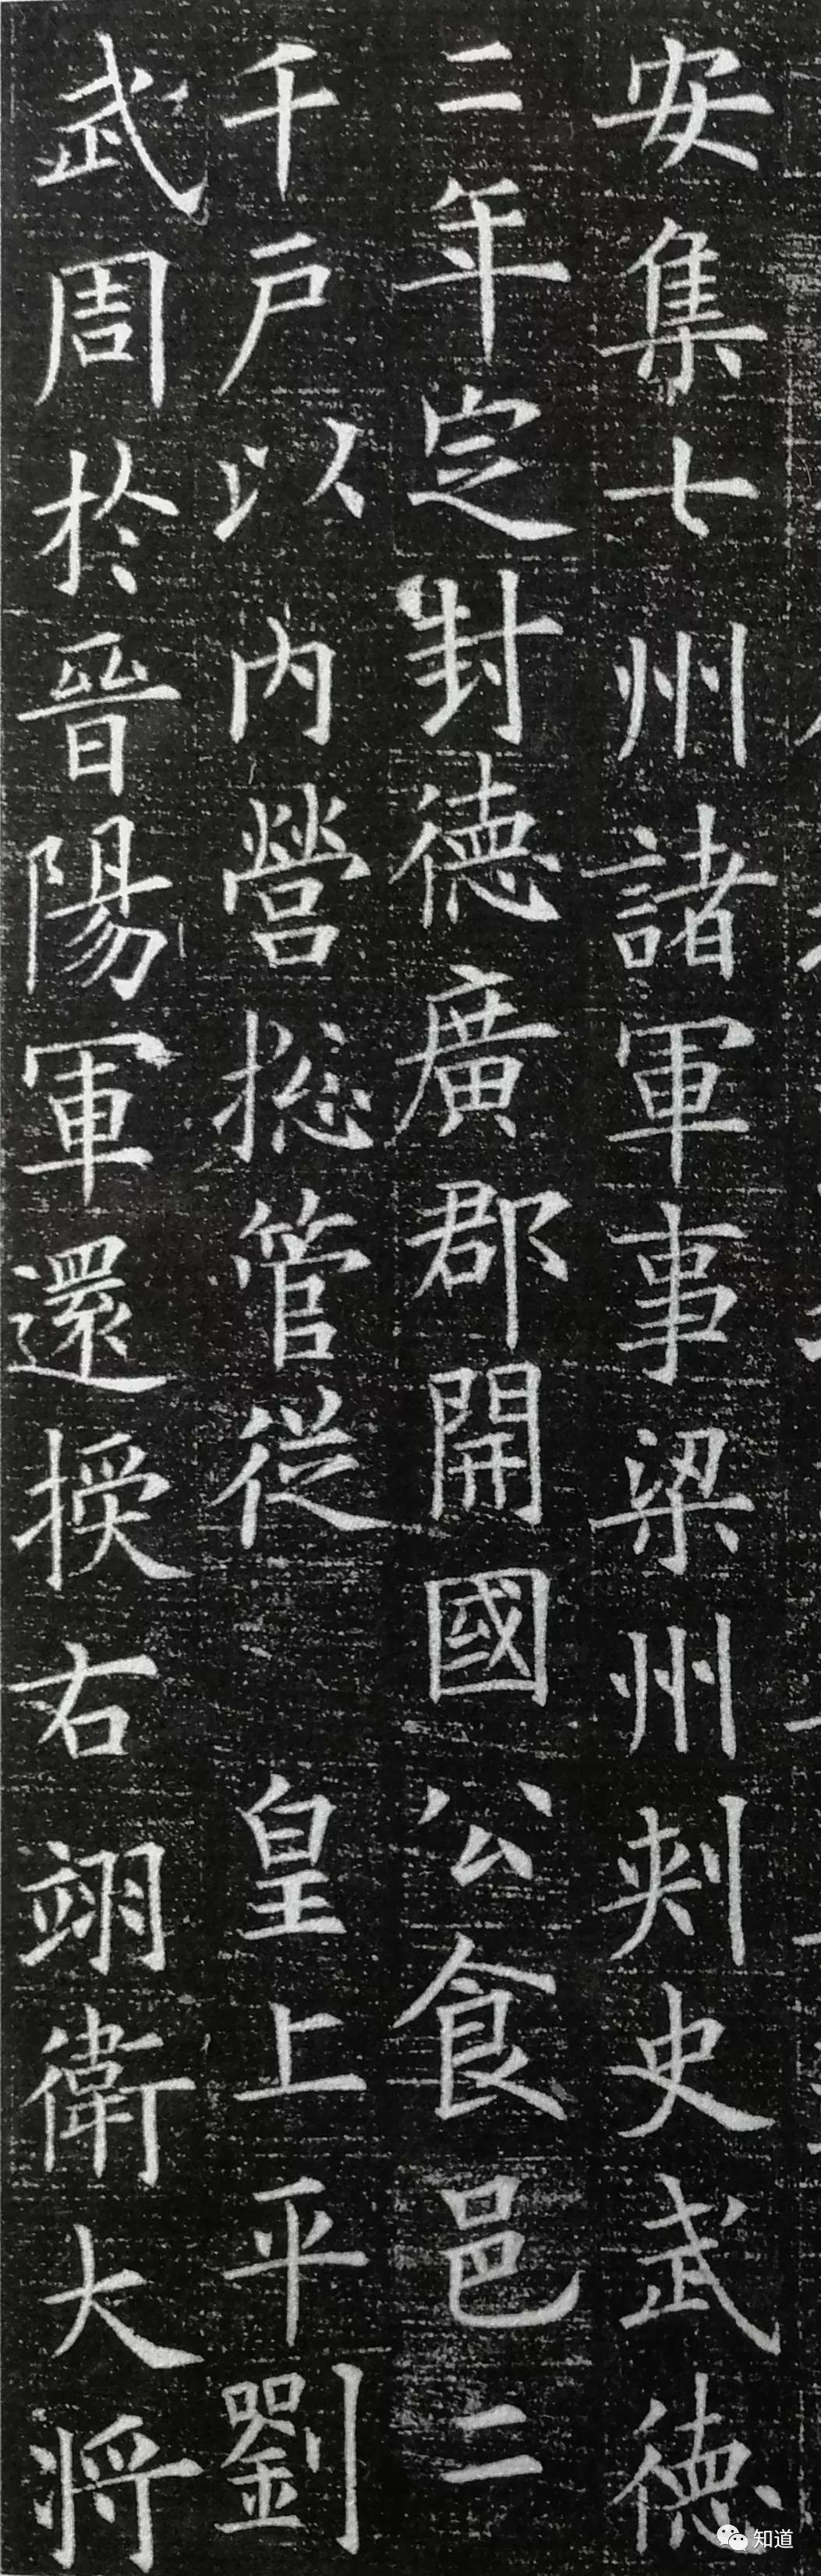 安集七州諸軍事梁州刾史武徳
二年定封徳廣郡開國公食邑二
千戶以內營捴管從皇上平劉
武周於晉陽軍還授右翊衛大将
知道